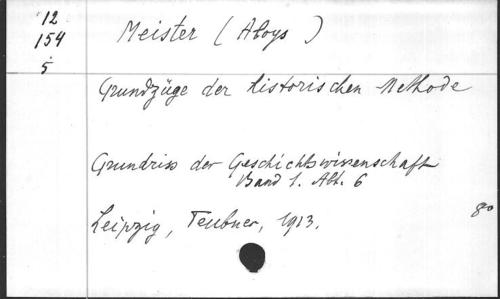 12
154
5
Meister (Aloys )
Grundzüge der historischen Methode
Grundriss der Geschichtswissenschaft
Band 1. Abt. 6
Leipzig, Teubner, 1913.
8°